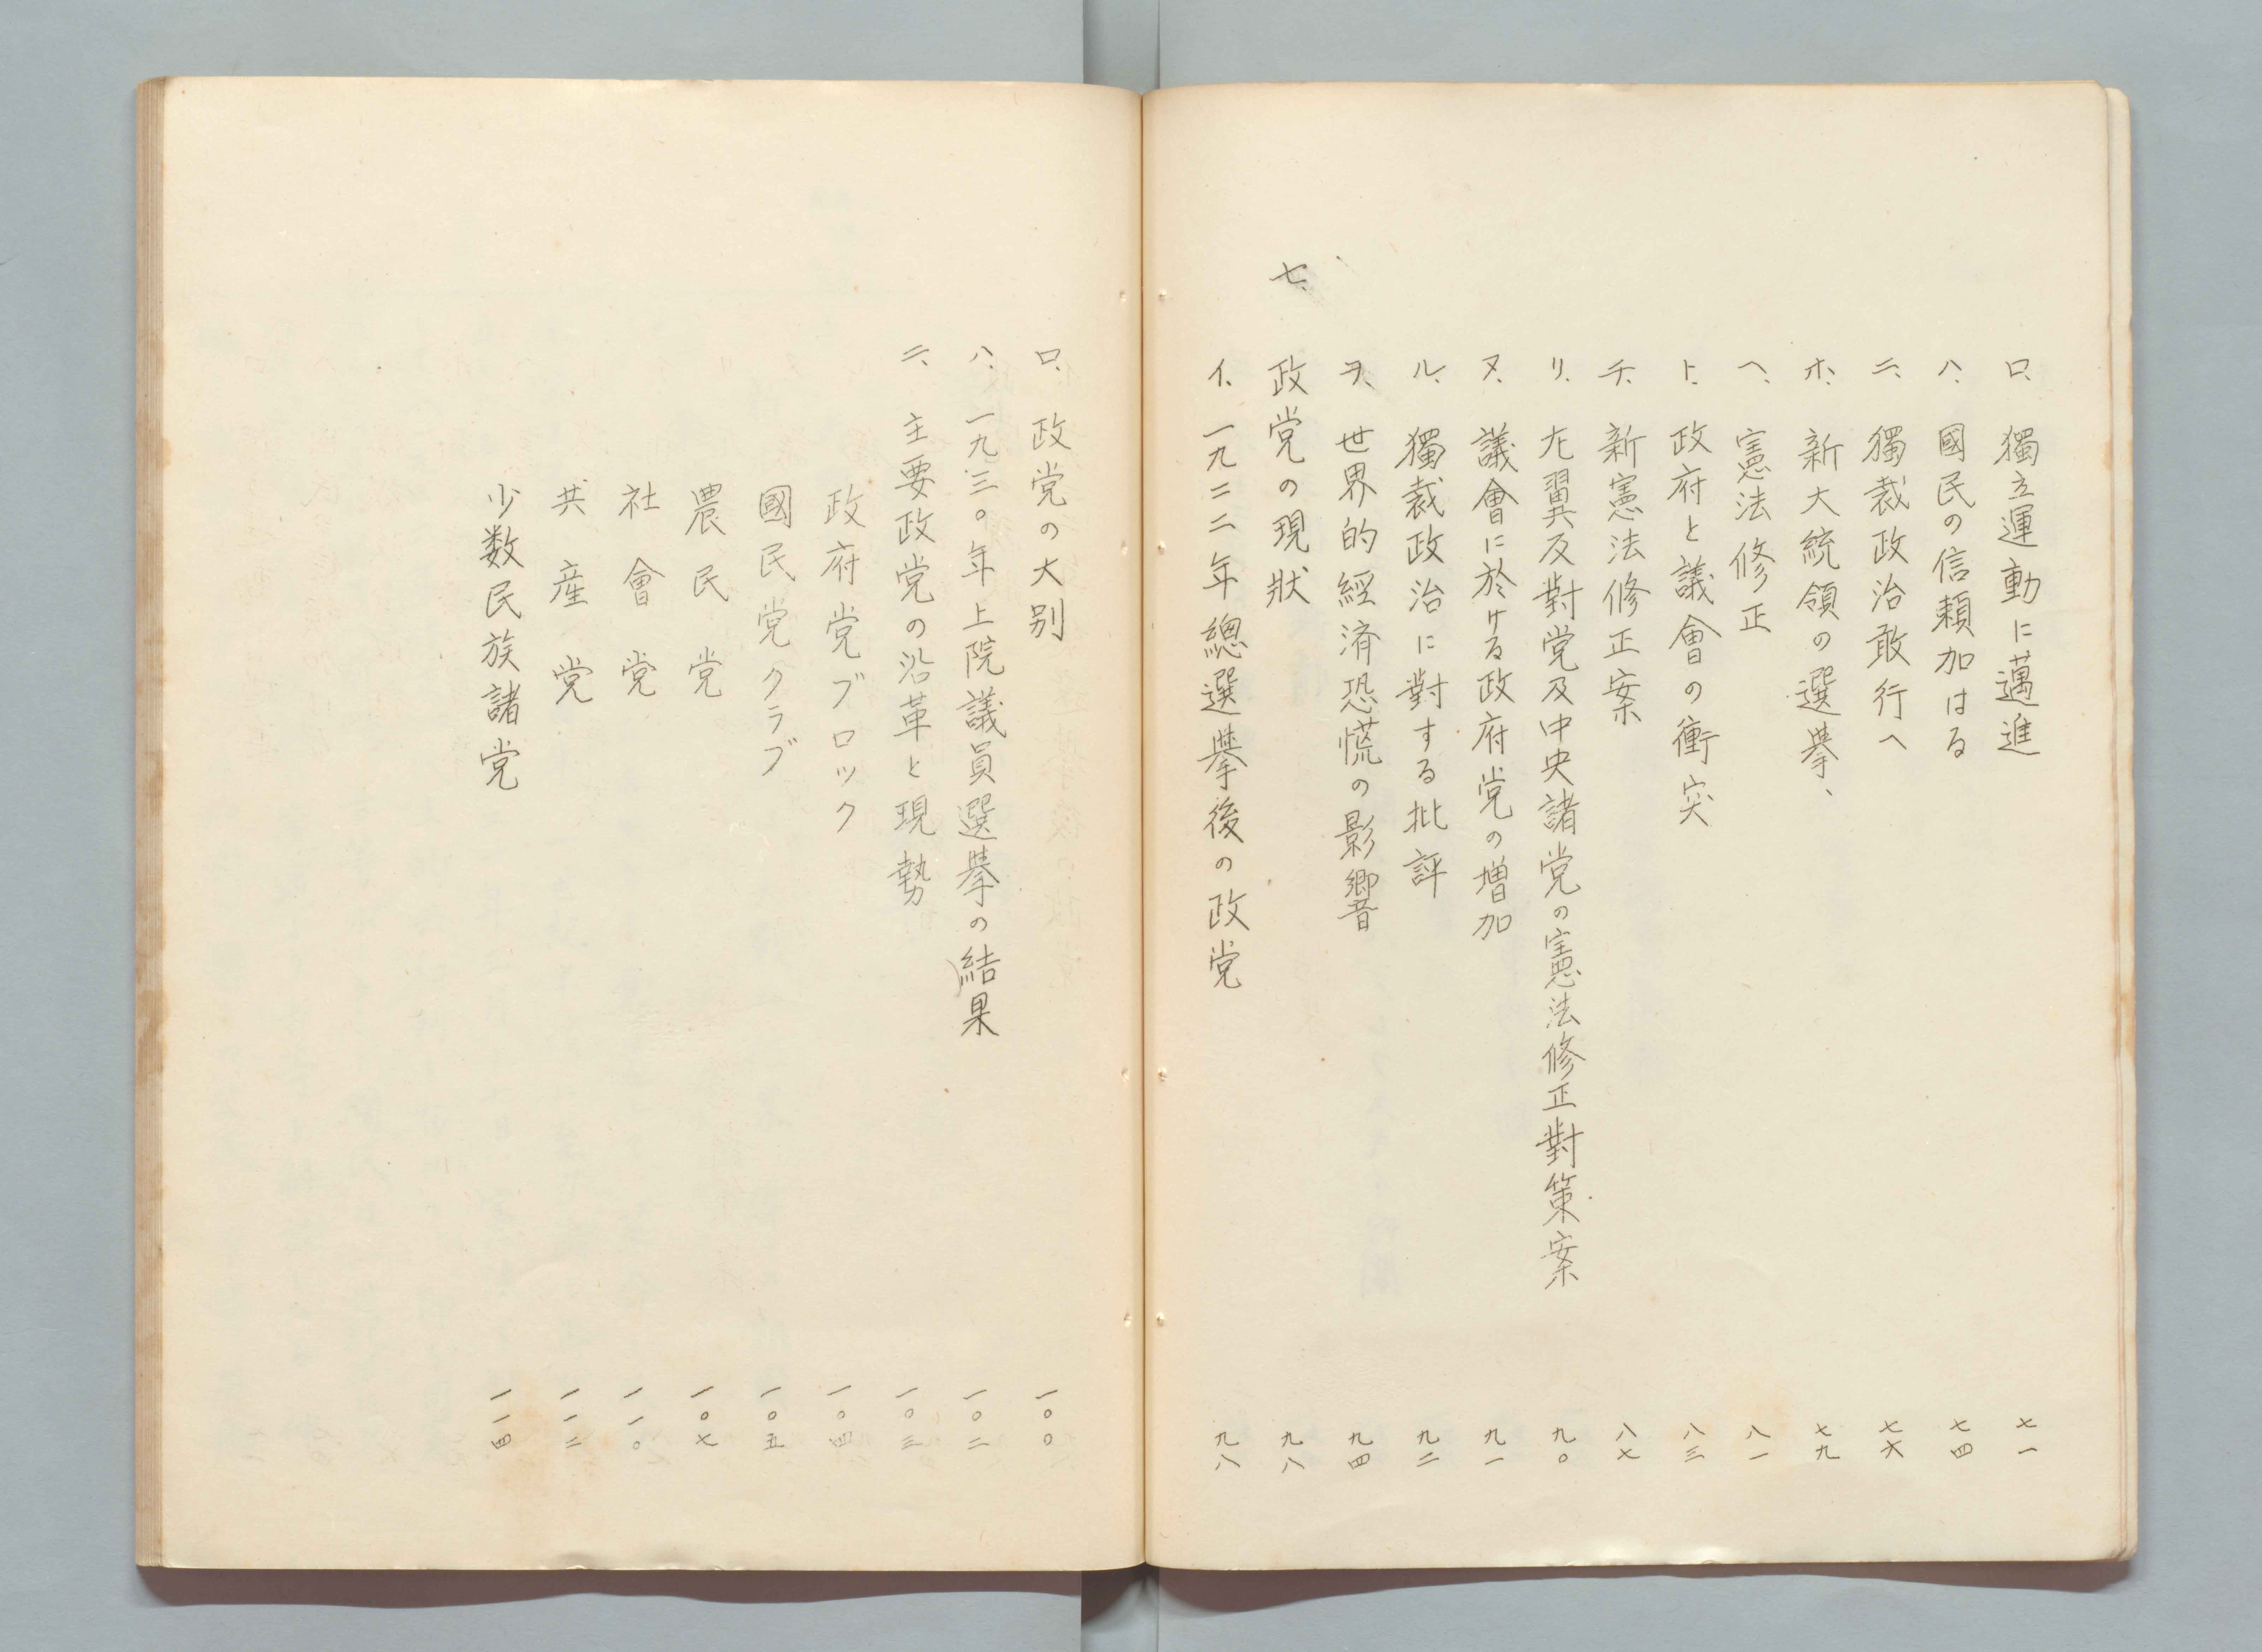 ロ、獨立運動に邁進 七一
ハ、國民の信頼加はる 七四
ニ、獨裁政治敢行へ 七六
ホ、新大統領の選挙、 七九
ヘ、憲法修正 八一
ト、政府と議會の衝突 八三
チ、新憲法修正案 八七
リ、左翼反對党及中央諸党の憲法修正對策案 九〇
ヌ、議會に於ける政府党の増加 九一
ル、獨裁政治に對する批評 九二
ヲ、世界的經済恐慌の影響 九四
七、政党の現狀 九八
イ、一九二二年總選挙後の政党 九八
ロ、政党の大別 一〇〇
ハ、一九三〇年上院議員選挙の結果 一〇二
ニ、主要政党の沿革と現勢 一〇三
政府党ブロック 一〇四
國民党クラブ 一〇五
農民党 一〇七
社會党 一一〇
共産党 一一二
少数民族諸党 一一四